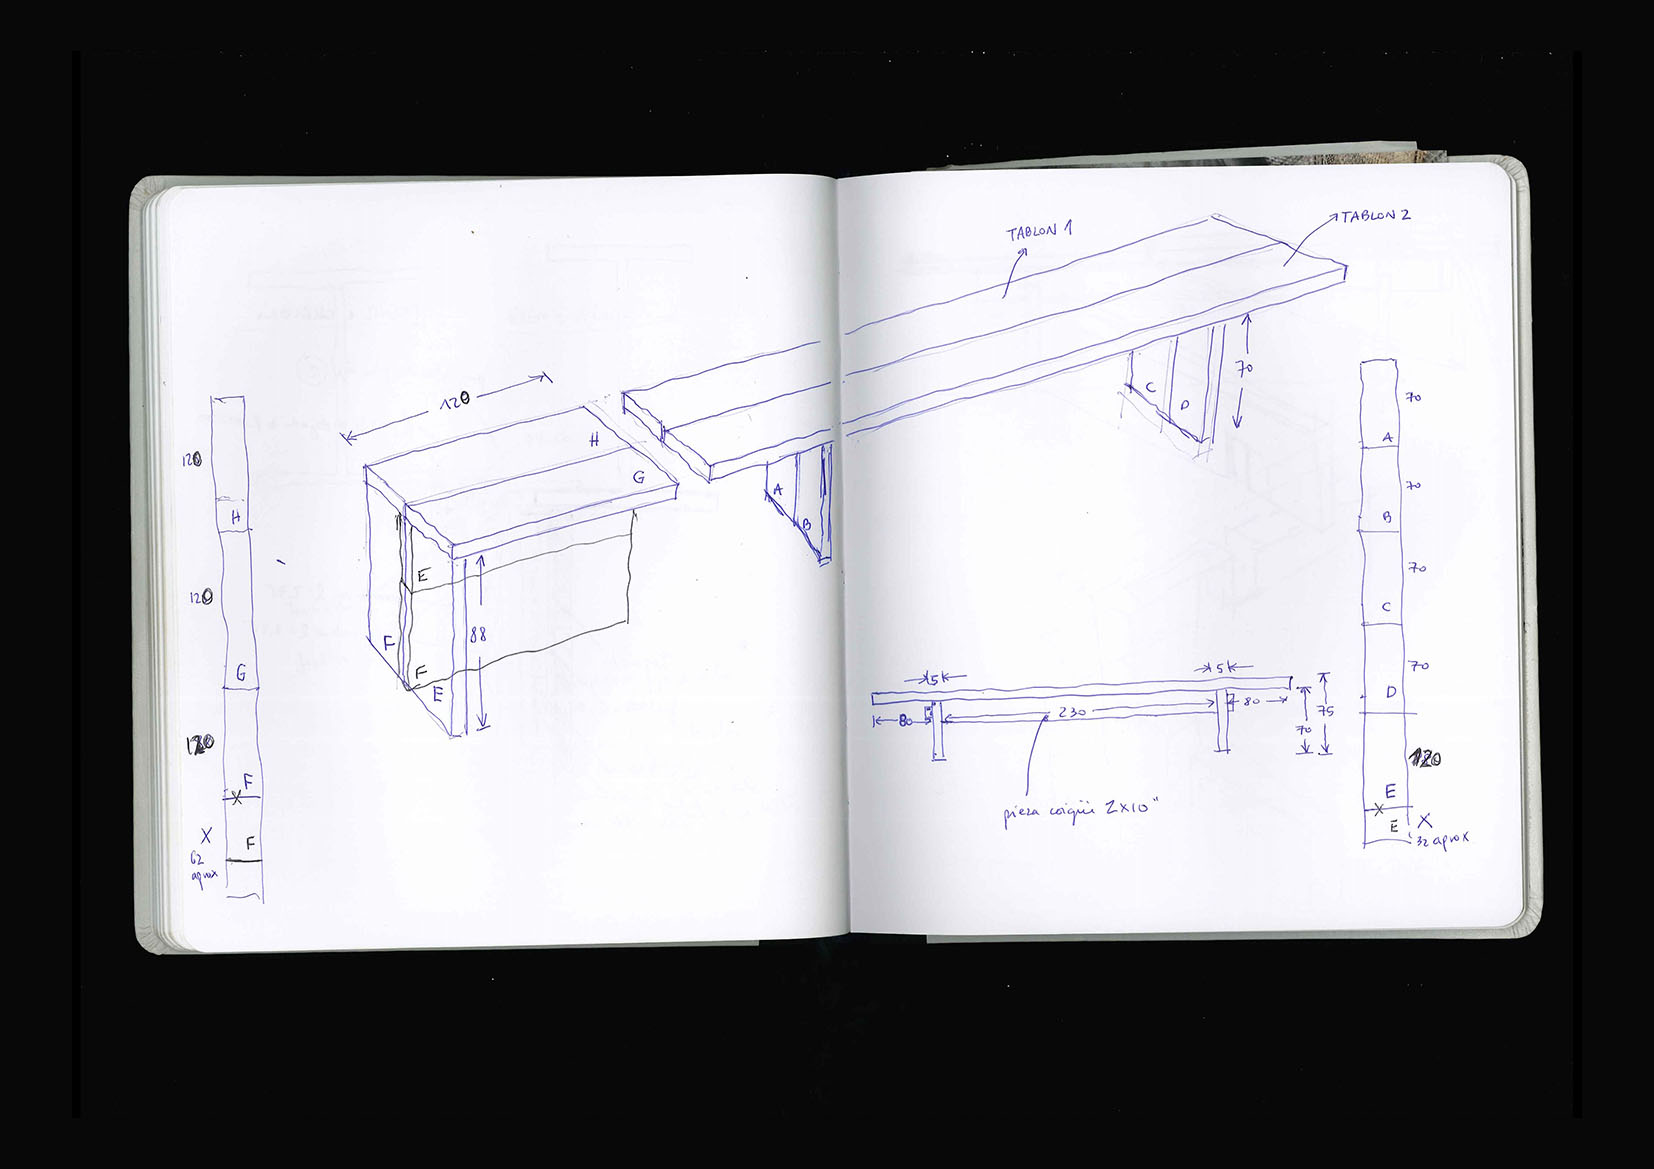 120
H
120
G
120
F
X
F
62
aprox
120
H
G
E
88
F
F
E
A
B
TABLON 1
TABLON 2
70
C
D
5
5
80
230
80
70
75
pieza coigüe 2x10"
70
A
70
B
70
C
70
D
120
E
X
E
32 aprox